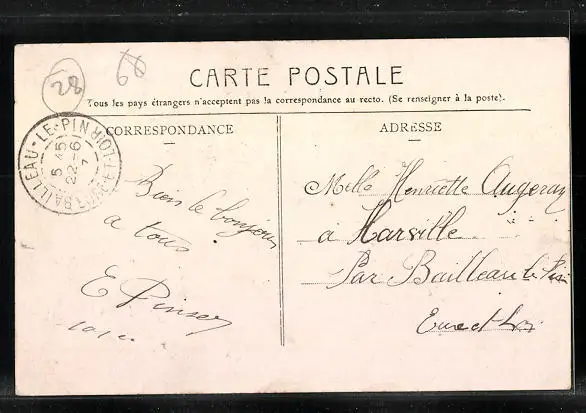 28
68
CARTE POSTALE
Tous les pays étrangers n'acceptent pas la correspondance au recto. (Se renseigner à la poste).
CORRESPONDANCE
ADRESSE
BAILLEAU-LE-PIN
5 45
22-6
Bien le bonjour
a tous
E
Melle Henriette Augeray
à Harville
Par Bailleau le Pin
Eure et Loir